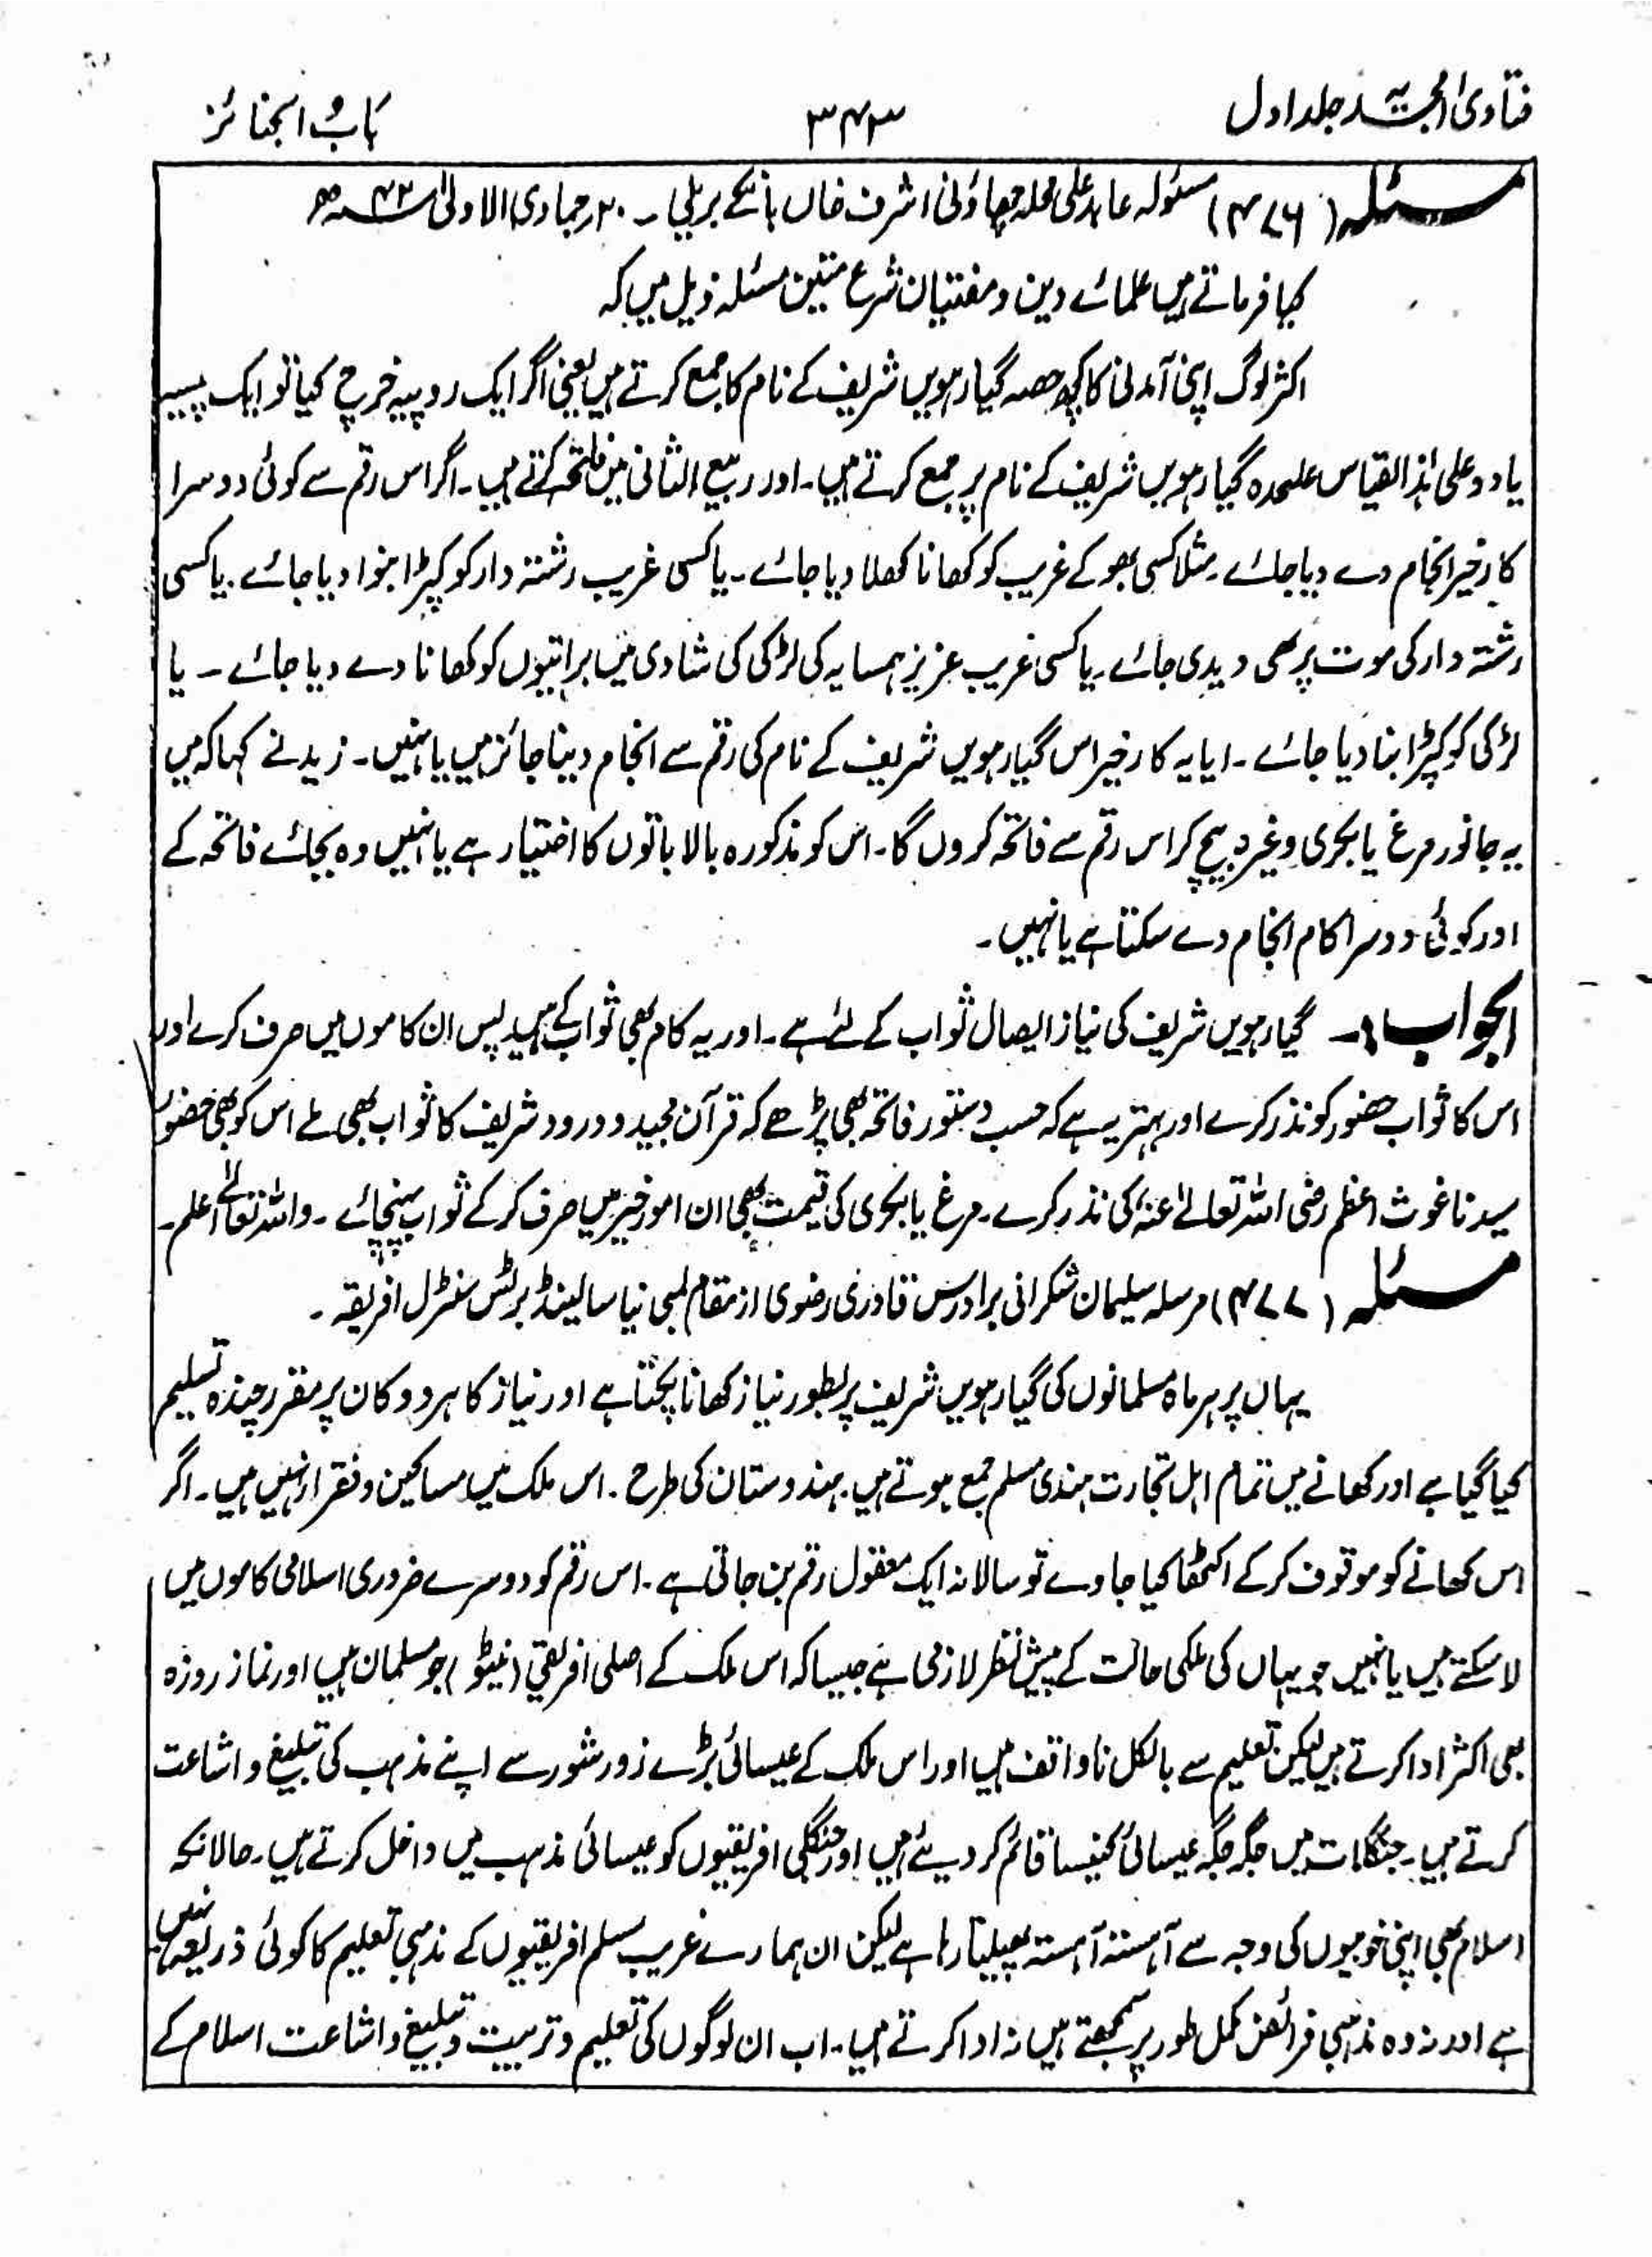 فتاویٰ امجدیہ جلد اول
۳۴۳
باب الجنائز
مسئلہ (۴۷۶) مسئولہ عابد علی محلہ چھاؤنی اشرف خاں بانکے بریلی ۔ ۲۰ جمادی الاولیٰ ۴۳ھ
کیا فرماتے ہیں علمائے دین و مفتیان شرع متین مسئلہ ذیل میں کہ
اکثر لوگ اپنی آمدنی کا کچھ حصہ گیارہویں شریف کے نام کا جمع کرتے ہیں یعنی اگر ایک روپیہ خرچ کیا تو ایک پیسہ
یا دو علی ہذا القیاس علیحدہ گیارہویں شریف کے نام پر جمع کرتے ہیں۔ اور ربیع الثانی میں فاتحہ کرتے ہیں۔ اگر اس رقم سے کوئی دوسرا
کار خیر انجام دے دیا جائے۔ مثلا کسی بھوکے غریب کو کھانا کھلا دیا جائے۔ یا کسی غریب رشتہ دار کو کپڑا بنوا دیا جائے۔ یا کسی
رشتہ دار کی موت پر بھی دیدی جائے۔ یا کسی غریب عزیز ہمسایہ کی لڑکی کی شادی میں براتیوں کو کھانا دے دیا جائے ۔ یا
لڑکی کو کپڑا بنا دیا جائے۔ ایا یہ کار خیر اس گیارہویں شریف کے نام کی رقم سے انجام دینا جائز ہیں یا نہیں۔ زید نے کہا کہ میں
یہ جانور مرغ یا بکری وغیرہ بیچ کر اس رقم سے فاتحہ کروں گا۔ اس کو مذکورہ بالا باتوں کا اختیار ہے یا نہیں وہ بجائے فاتحہ کے
اور کوئی دوسرا کام انجام دے سکتا ہے یا نہیں۔
الجواب:۔ گیارہویں شریف کی نیاز ایصال ثواب کے لئے ہے۔ اور یہ کام بھی ثواب کے ہیں پس ان کاموں میں صرف کرے اور
اس کا ثواب حضور کو نذر کرے اور بہتر یہ ہے کہ حسب دستور فاتحہ بھی پڑھے کہ قرآن مجید و درود شریف کا ثواب بھی ملے اس کو بھی حضور
سیدنا غوث اعظم رضی اللہ تعالےٰ عنہٗ کی نذر کرے۔ مرغ یا بکری کی قیمت بھی ان امور خیر میں صرف کر کے ثواب پہنچائے ۔ واللہ تعالےٰ اعلم۔
مسئلہ (۴۷۷) مرسلہ سلیمان شکرانی برادرس قادری رضوی از مقام لمبی نیاسا لینڈ برٹش سنٹرل افریقہ ۔
یہاں پر ہر ماہ مسلمانوں کی گیارہویں شریف پر بطور نیاز کھانا پکتا ہے اور نیاز کا ہر دوکان پر مقرر چندہ تسلیم
کیا گیا ہے اور کھانے میں تمام اہل تجارت ہندی مسلم جمع ہوتے ہیں۔ ہندوستان کی طرح ۔ اس ملک میں مساکین و فقراء نہیں ہیں۔ اگر
اس کھانے کو موقوف کر کے اکٹھا کیا جاوے تو سالانہ ایک معقول رقم بن جاتی ہے ۔ اس رقم کو دوسرے ضروری اسلامی کاموں میں
لا سکتے ہیں یا نہیں جو یہاں کی ملکی حالت کے پیش نظر لازمی ہے جیسا کہ اس ملک کے اصلی افریقی (نیٹو) جو مسلمان ہیں اور نماز روزہ
بھی اکثر ادا کرتے ہیں لیکن تعلیم سے بالکل ناواقف ہیں اور اس ملک کے عیسائی بڑے زور شور سے اپنے مذہب کی تبلیغ و اشاعت
کرتے ہیں۔ جنگلات میں جگہ جگہ عیسائی کنیسا قائم کر دیئے ہیں اور جنگلی افریقیوں کو عیسائی مذہب میں داخل کرتے ہیں۔ حالانکہ
اسلام بھی اپنی خوبیوں کی وجہ سے آہستہ آہستہ پھیلتا رہا ہے لیکن ان ہمارے غریب مسلم افریقیوں کے مذہبی تعلیم کا کوئی ذریعہ نہیں
ہے اور نہ وہ مذہبی فرائض مکمل طور پر سمجھتے ہیں نہ ادا کرتے ہیں۔ اب ان لوگوں کی تعلیم و تربیت و تبلیغ و اشاعت اسلام کے